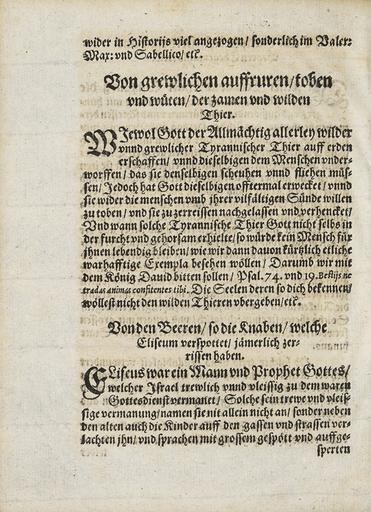 wider in Historijs viel angezogen / sonderlich im Valer:
Max: vnd Sabellico / etc.
Von grewlichen auffruren / toben
vnd wüten / der zamen vnd wilden
Thier.
WJewol Gott der Allmächtig allerley wilder
vnnd grewlicher Tyrannischer Thier auff erden
erschaffen / vnnd dieselbigen dem Menschen vnder-
worffen / das sie denselbigen scheuhen vnnd fliehen müs-
sen / Jedoch hat Gott dieselbigen offtermal erwecket / vnnd
sie wider die menschen vmb jhrer vilfältigen Sünde willen
zu toben / vnd sie zu zerreissen nachgelassen vnd verhencket /
Vnd wann solche Tyrannische Thier Gott nicht selbs in
der furcht vnd gehorsam erhielte / so würde kein Mensch für
jhnen lebendig bleiben / wie wir dann dauon kürtzlich etliche
warhafftige Exempla besehen wöllen / Darumb wir mit
dem König Dauid bitten sollen / Psal. 74. vnd 19. Bestijs ne
tradas animas confitentes tibi. Die Seelen deren so dich bekennen /
wöllest nicht den wilden Thieren vbergeben / etc.
Von den Beeren / so die Knaben / welche
Eliseum verspottet / jämerlich zer-
rissen haben.
ELiseus war ein Mann vnd Prophet Gottes /
welcher Jsrael trewlich vnnd vleissig zu dem waren
Gottesdienst vermanet / Solche sein trewe vnd vleis-
sige vermanung / namen sie nit allein nicht an / sonder neben
den alten auch die Kinder auff den gassen vnd strassen ver-
lachten jhn / vnd sprachen mit grossem gespött vnd auffge-
sperten